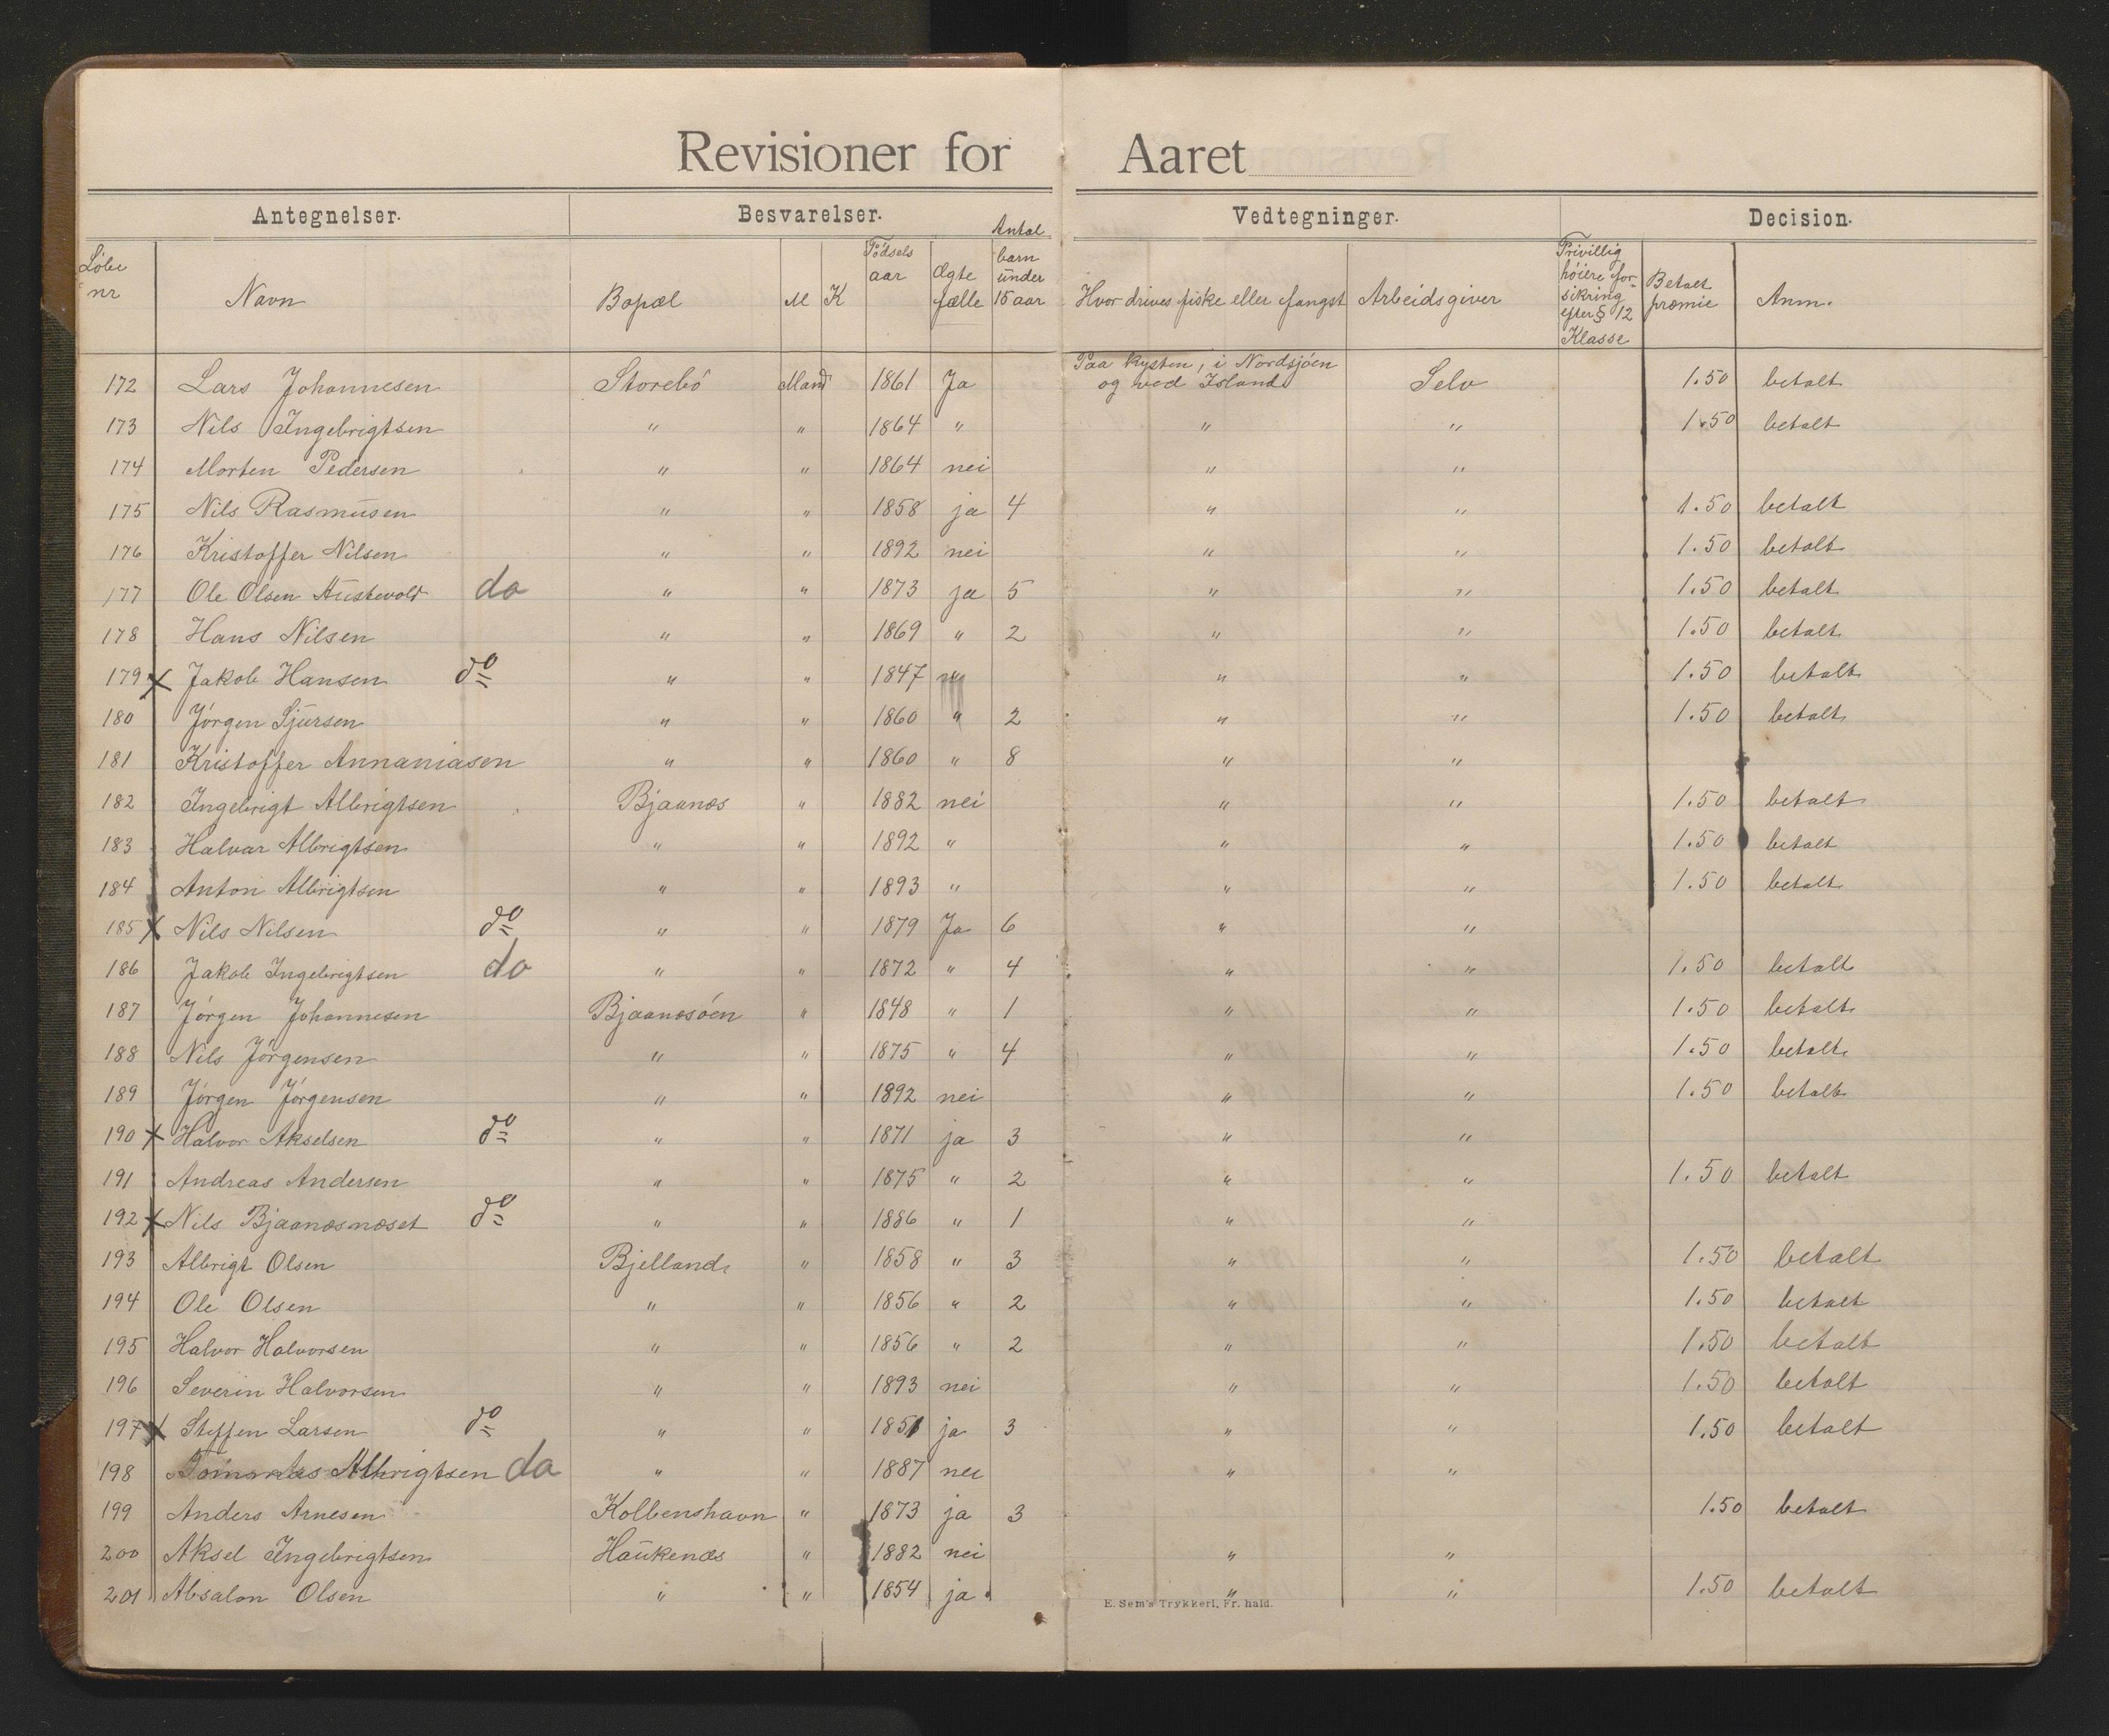 Revisioner for Aaret
Antegnelser. Besvarelser. Vedtegninger. Decision.
Løbe nr Navn Bopæl M K Fødsels aar Ægte fælle Antal barn under 15 aar Hvor drives fiske eller fangst Arbeidsgiver Frivillig høiere for- sikring efter § 12 Klasse Betalt præmie Anm.
172 Lars Johannesen Storebö Mand 1861 Ja Paa kysten, i Nordsjöen og ved Island Selv 1.50 betalt
173 Nils Ingebrigtsen " " 1864 " " " 1.50 betalt
174 Morten Pedersen " " 1864 nei " "
175 Nils Rasmusen " " 1858 ja 4 " " 1.50 betalt
176 Kristoffer Nilsen " " 1892 nei " " 1.50 betalt
177 Ole Olsen Austevold do " " 1873 ja 5 " " 1.50 betalt
178 Hans Nilsen " " 1869 " 2 " " 1.50 betalt
179 x Jakob Hansen do " " 1847 " " 1.50 betalt
180 Jörgen Sjursen " " 1860 " 2 " " 1.50 betalt
181 Kristoffer Annaniasen " " 1860 " 8 " "
182 Ingebrigt Albrigtsen Bjaanæs " 1882 nei " " 1.50 betalt
183 Halvar Albrigtsen " " 1892 " " " 1.50 betalt
184 Anton Albrigtsen " " 1893 " " " 1.50 betalt
185 x Nils Nilsen do " " 1879 Ja 6 " "
186 Jakob Ingebrigtsen do " " 1872 " 4 " " 1.50 betalt
187 Jörgen Johannesen Bjaanesöen " 1848 " 1 " " 1.50 betalt
188 Nils Jörgensen " " 1875 " 4 " " 1.50 betalt
189 Jörgen Jörgensen " " 1892 nei " " 1.50 betalt
190 x Halvor Akselsen do " " 1871 ja 3 " "
191 Andreas Andersen " " 1875 " 2 " " 1.50 betalt
192 x Nils Bjaanæsnæset do " " 1886 " 1 " "
193 Albrigt Olsen Bjelland " 1858 " 3 " " 1.50 betalt
194 Ole Olsen " " 1856 " 2 " " 1.50 betalt
195 Halvor Halvorsen " " 1856 " 2 " " 1.50 betalt
196 Severin Halvorsen " " 1893 nei " " 1.50 betalt
197 x Steffen Larsen do " " 1851 ja 3 " " 1.50 betalt
198 Albrigtsen do " " 1887 nei " "
199 Anders Arnesen Kolbenshavn " 1873 ja 3 1.50 betalt
200 Aksel Ingebrigtsen Haukenæs " 1882 nei " "
201 Absalon Olsen " " 1854 ja " " 1.50 betalt
E. Sem's Trykkeri, Fr. hald.